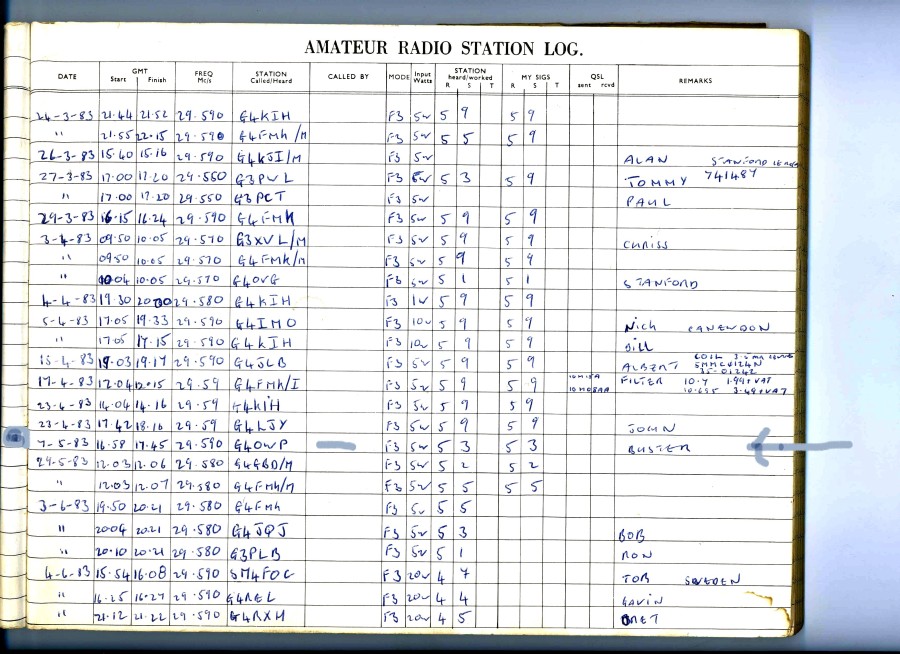 AMATEUR RADIO STATION LOG.
DATE GMT Start Finish FREQ Mc/s STATION Called/Heard CALLED BY MODE Input Watts STATION heard/worked R S T MY SIGS R S T QSL sent rcvd REMARKS
24-3-83 21.44 21.52 29.590 G4KIH F3 5w 5 9 5 9
" 21.55 22.15 29.590 G4FMK/M F3 5w 5 5 5 9
26-3-83 15.40 15.16 29.590 G4KJI/M F3 5w ALAN STANFORD
27-3-83 17.00 17.20 29.550 G3PWL F3 5w 5 3 5 9 TOMMY 741487
" 17.00 17.20 29.550 G3PCT F3 5w PAUL
29-3-83 16.15 16.24 29.590 G4FMK F3 5w 5 9 5 9
3-4-83 09.50 10.05 29.570 G3XVL/M F3 5w 5 9 5 9 CHRISS
" 09.50 10.05 29.570 G4FMK/M F3 5w 5 9 5 9
" 10.04 10.05 29.570 G4OVG F3 5w 5 1 5 1 STANFORD
4-4-83 19.30 20.00 29.580 G4KIH F3 1w 5 9 5 9
5-4-83 17.05 19.33 29.590 G4IMO F3 10w 5 9 5 9 Nich
" 17.05 17.15 29.590 G4KIH F3 10w 5 9 5 9 Bill
29.590 G4JLB F3 5w 5 9 5 9 ALBERT COIL
19.03 19.17
17-4-83 12.04 12.15 29.59 G4FMK/I F3 5w 5 9 5 9 FILTER 10.7 1.99+VAT
10.695 3.49+VAT
23-4-83 14.04 14.16 29.59 G4KIH F3 5w 5 9 5 9
23-4-83 17.42 18.16 29.59 G4LJY F3 5w 5 9 5 9 JOHN
7-5-83 16.58 17.45 29.590 G4OWP F3 5w 5 3 5 3 BUSTER
29-5-83 12.03 12.06 29.580 G4GBD/M F3 5w 5 2 5 2
" 12.03 12.07 29.580 G4FMK/M F3 5w 5 5 5 5
3-6-83 19.50 20.21 29.580 G4FMK F3 5w 5 5
" 20.04 20.21 29.580 G4JQJ F3 5w 5 3 BOB
" 20.10 20.21 29.580 G3PLB F3 5w 5 1 RON
4-6-83 15.54 16.08 29.590 SM4FOC F3 20w 4 7 TOB SWEDEN
" 16.25 16.27 29.590 G4REL F3 20w 4 4 GAVIN
" 21.12 21.22 29.590 G4RXH F3 20w 4 5 BRET